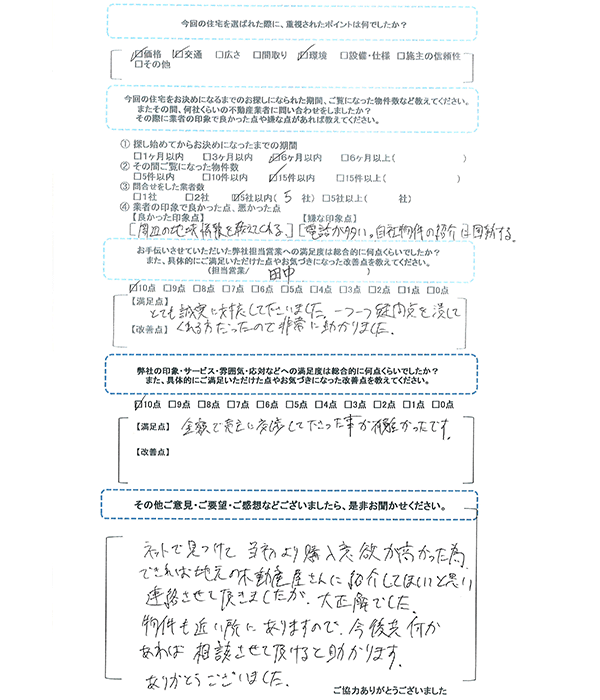 今回の住宅を選ばれた際に、重視されたポイントは何でしたか？
☑価格 ☑交通 □広さ □間取り ☑環境 □設備・仕様 □施主の信頼性
□その他
今回の住宅をお決めになるまでのお探しになられた期間、ご覧になった物件数など教えてください。
またその間、何社くらいの不動産業者に問い合わせをしましたか？
その際に業者の印象で良かった点や嫌な点があれば教えてください。
① 探し始めてからお決めになったまでの期間
□1ヶ月以内 □3ヶ月以内 ☑6ヶ月以内 □6ヶ月以上( )
② その間ご覧になった物件数
□5件以内 □10件以内 ☑15件以内 □15件以上( )
③ 問合せをした業者数
□1社 □2社 ☑5社以内( 5 社) □5社以上( 社)
④ 業者の印象で良かった点、悪かった点
【良かった印象点】 【嫌な印象点】
[周辺の地域情報を教えてくれる。] [電話が多い。自社物件の紹介に固執する。
お手伝いさせていただいた弊社担当営業への満足度は総合的に何点くらいでしたか？
また、具体的にご満足いただけた点やお気づきになった改善点を教えてください。
(担当営業/ 田中 )
☑10点 □9点 □8点 □7点 □6点 □5点 □4点 □3点 □2点 □1点 □0点
【満足点】 とても誠実に対応して下さいました。一つ一つ疑問点を潰して
【改善点】 くれる方だったので非常に助かりました。
弊社の印象・サービス・雰囲気・応対などへの満足度は総合的に何点くらいでしたか？
また、具体的にご満足いただけた点やお気づきになった改善点を教えてください。
☑10点 □9点 □8点 □7点 □6点 □5点 □4点 □3点 □2点 □1点 □0点
【満足点】 金額で売主に交渉して下さった事が有難かったです。
【改善点】
その他ご意見・ご要望・ご感想などございましたら、是非お聞かせください。
ネットで見つけて 当初より購入意欲が高かった為
できれば地元の不動産屋さんに紹介してほしいと思い
連絡させて頂きましたが、大正解でした。
物件も近い所にありますので、今後共何か
あれば 相談させて頂けると助かります。
ありがとうございました。
ご協力ありがとうございました